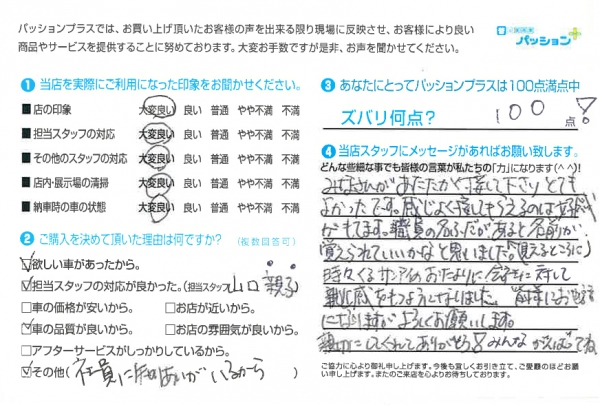 パッションプラスでは、お買い上げ頂いたお客様の声を出来る限り現場に反映させ、お客様により良い
商品やサービスを提供することに努めております。大変お手数ですが是非、お声を聞かせてください。
パッション
1 当店を実際にご利用になった印象をお聞かせください。
■店の印象 大変良い 良い 普通 やや不満 不満
■担当スタッフの対応 大変良い 良い 普通 やや不満 不満
■その他のスタッフの対応 大変良い 良い 普通 やや不満 不満
■店内・展示場の清掃 大変良い 良い 普通 やや不満 不満
■納車時の車の状態 大変良い 良い 普通 やや不満 不満
2 ご購入を決めて頂いた理由は何ですか? (複数回答可)
☑欲しい車があったから。
☑担当スタッフの対応が良かった。(担当スタッフ 山口
□車の価格が安いから。 □お店が近いから。
☑車の品質が良いから。 □お店の雰囲気が良いから。
□アフターサービスがしっかりしているから。
☑その他( 社員に知りあいがいるから )
3 あなたにとってパッションプラスは100点満点中
ズバリ何点? 100 点!
4 当店スタッフにメッセージがあればお願い致します。
どんな些細な事でも皆様の言葉が私たちの「力」になります(^^)!
みなさんがあたたかく接して下さりとても
よかったです。感じよく接してもらえるのは好感
がもてます。職員の名ふだがあると名前が
覚えられていいかなと思いました。(見えるところに)
時々くる
親近感をもつようになりました。
よろしくお願いします。
親切にしてくれてありがとう みんながんばってね
ご協力に心より御礼申し上げます。今後も宜しくお引き立て、ご愛顧のほどお願い
申し上げます。またのご来店を心よりお待ちしております。